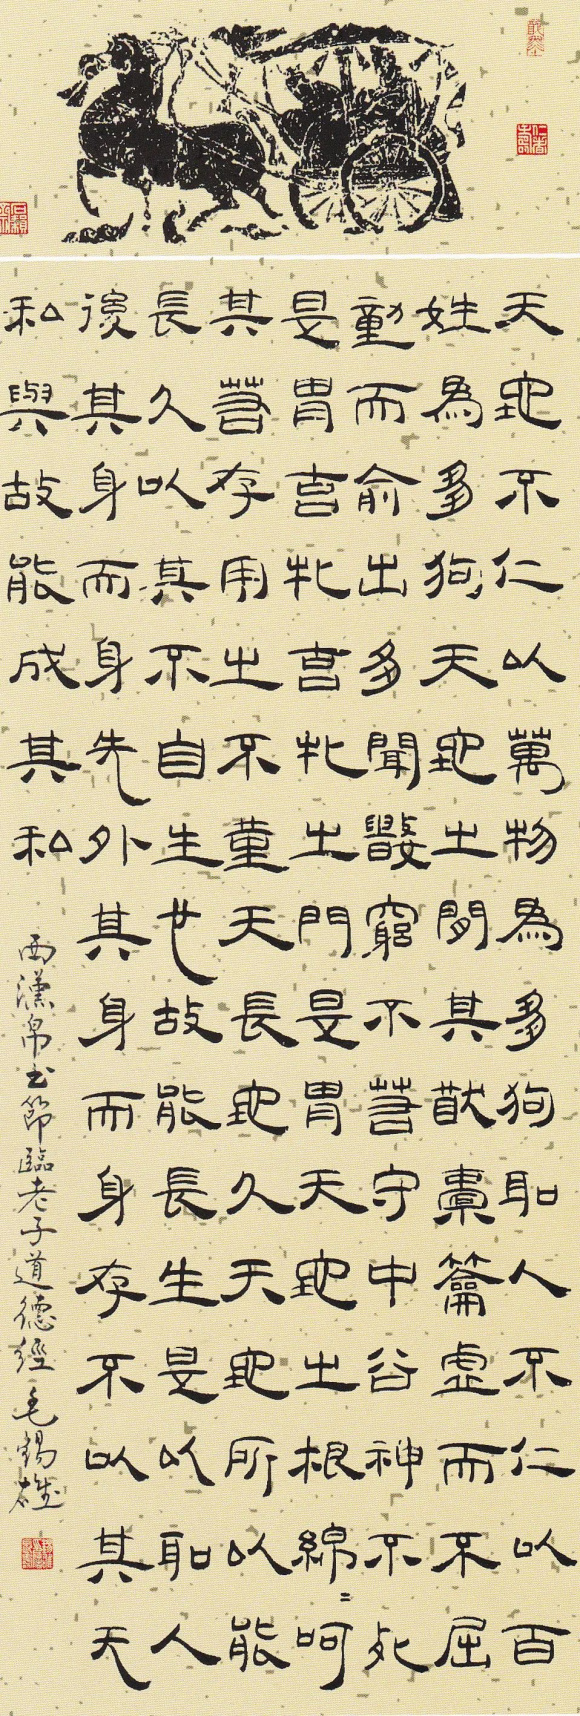 天地不仁以萬物為芻狗耴人不仁以百
姓為芻狗天地之間其猷橐籥虛而不屈
動而俞出多聞數窮不若守中谷神不死
是胃玄牝玄牝之門是胃天地之根綿=呵
其若存用之不堇天長地久天地所以能
長久以其不自生也故能長生是以耴人
後其身而身先外其身而身存不以其无
私與故能成其私
西漢帛書節臨老子道德經 毛錫雄
仁者壽